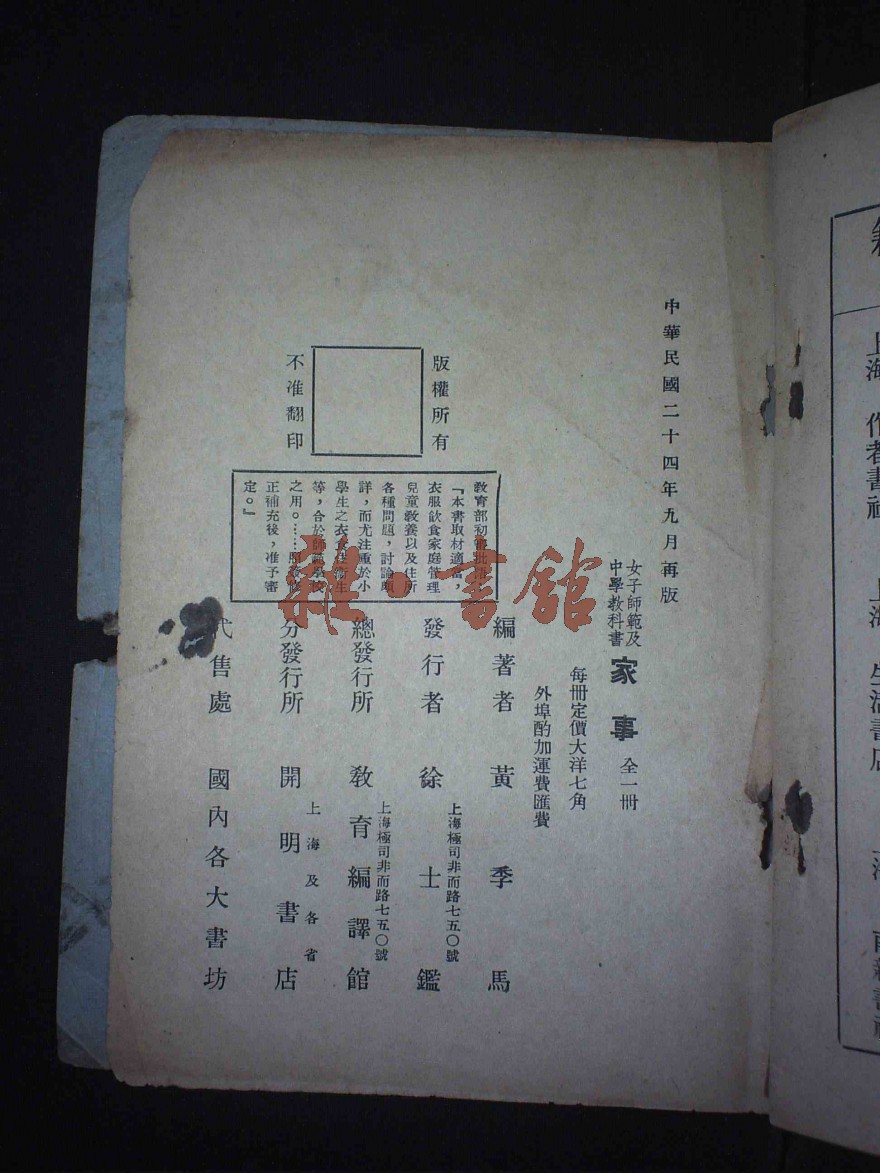 中華民國二十四年九月再版
女子師範及
中學教科書
家事
全一冊
每冊定價大洋七角
外埠酌加運費匯費
編著者 黃季馬
發行者 徐士鑑
上海極司非而路七五〇號
總發行所 教育編譯館
上海極司非而路七五〇號
分發行所 開明書店
上海及各省
代售處 國內各大書坊
版權所有
不准翻印
教育部初審批語
「本書取材適當，
衣服飲食家庭管理
兒童教養以及住所
各種問題，討論頗
詳，而尤注重於小
學生之衣食住衛生
等，合於師範學校
之用。……照簽修
正補充後，准予審
定。」
雜·書館
上海 作者書社
上海 生活書店